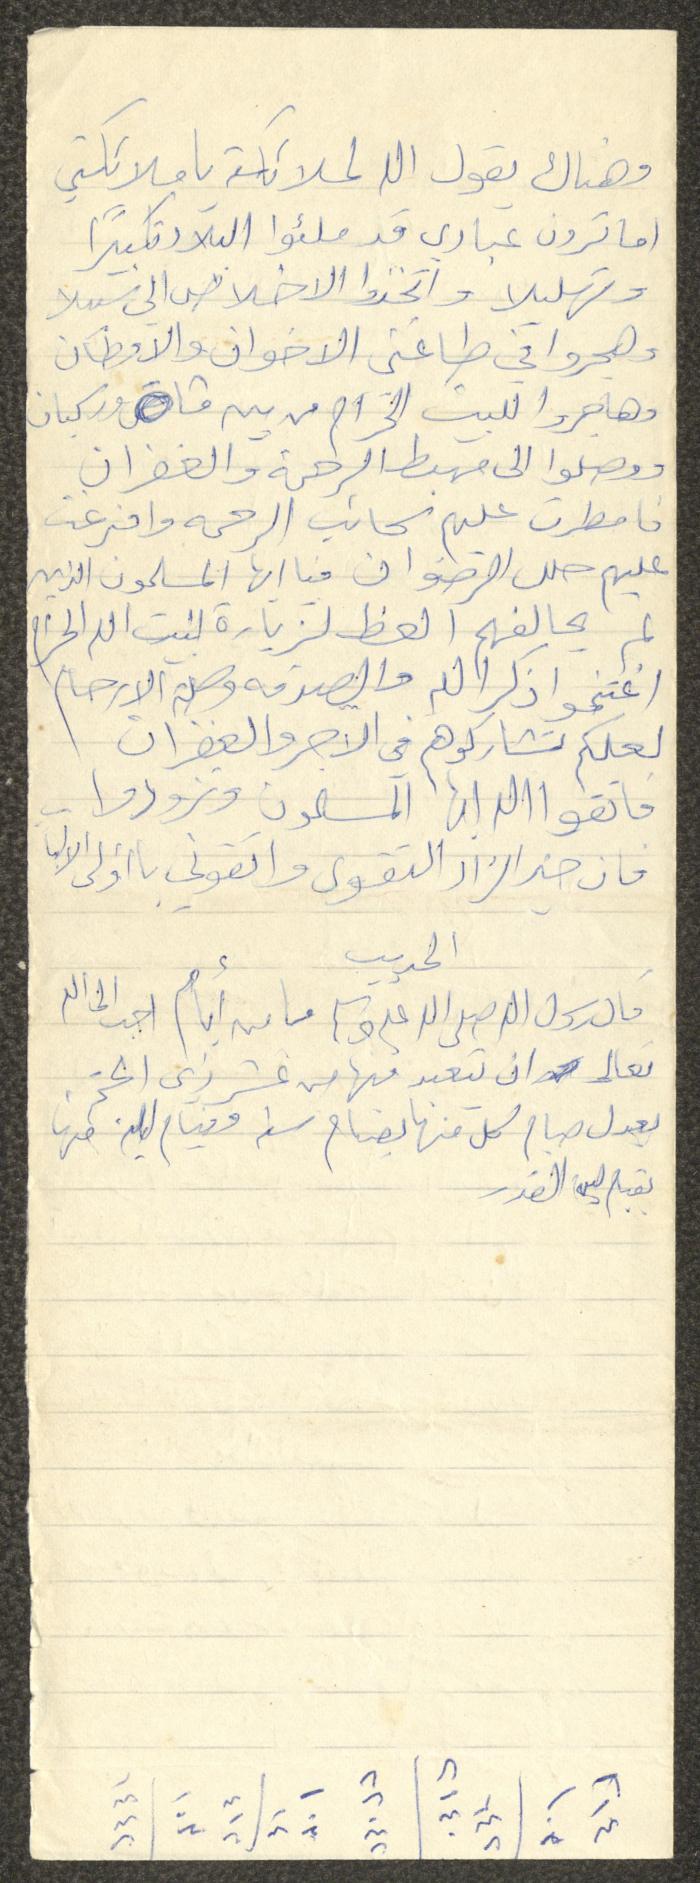 وهناك يقول الله لملائكته يا ملائكتي
اما ترون عبادي قد ملئوا البلاد تكبيرًا
وتهليلا واتخذوا الاخلاص الي سبيلا
وهجروا في طاعتى الاخوان والاوطان
وهاجروا للبيت الحرام من بين مشاة وركبان
ووصلوا الى مهبط الرحمة والغفران
فامطرت عليهم سحائب الرحمه وافرغت
عليهم حلل الرضوان فيا ايها المسلمون الذين
لم يحالفهم الحظ لزيارة لبيت الله الحرام
اغتنموا ذكر الله والصدقه وصلة الارحام
لعلكم تشاركوهم في الاجر والغفران
فاتقوا الله ايها المسلمون وتزودوا
فان خير الزاد التقوى واتقوني يا أولى الالباب
الحديث
قال رسول الله صلى الله عليه وسلم ما من أيام احب الى الله
تعالى ان يتعبد فيها من عشر ذى الحجة
يعدل صيام كل منها بصيام سنه وقيام ليلة منها
بقيام ليلة القدر